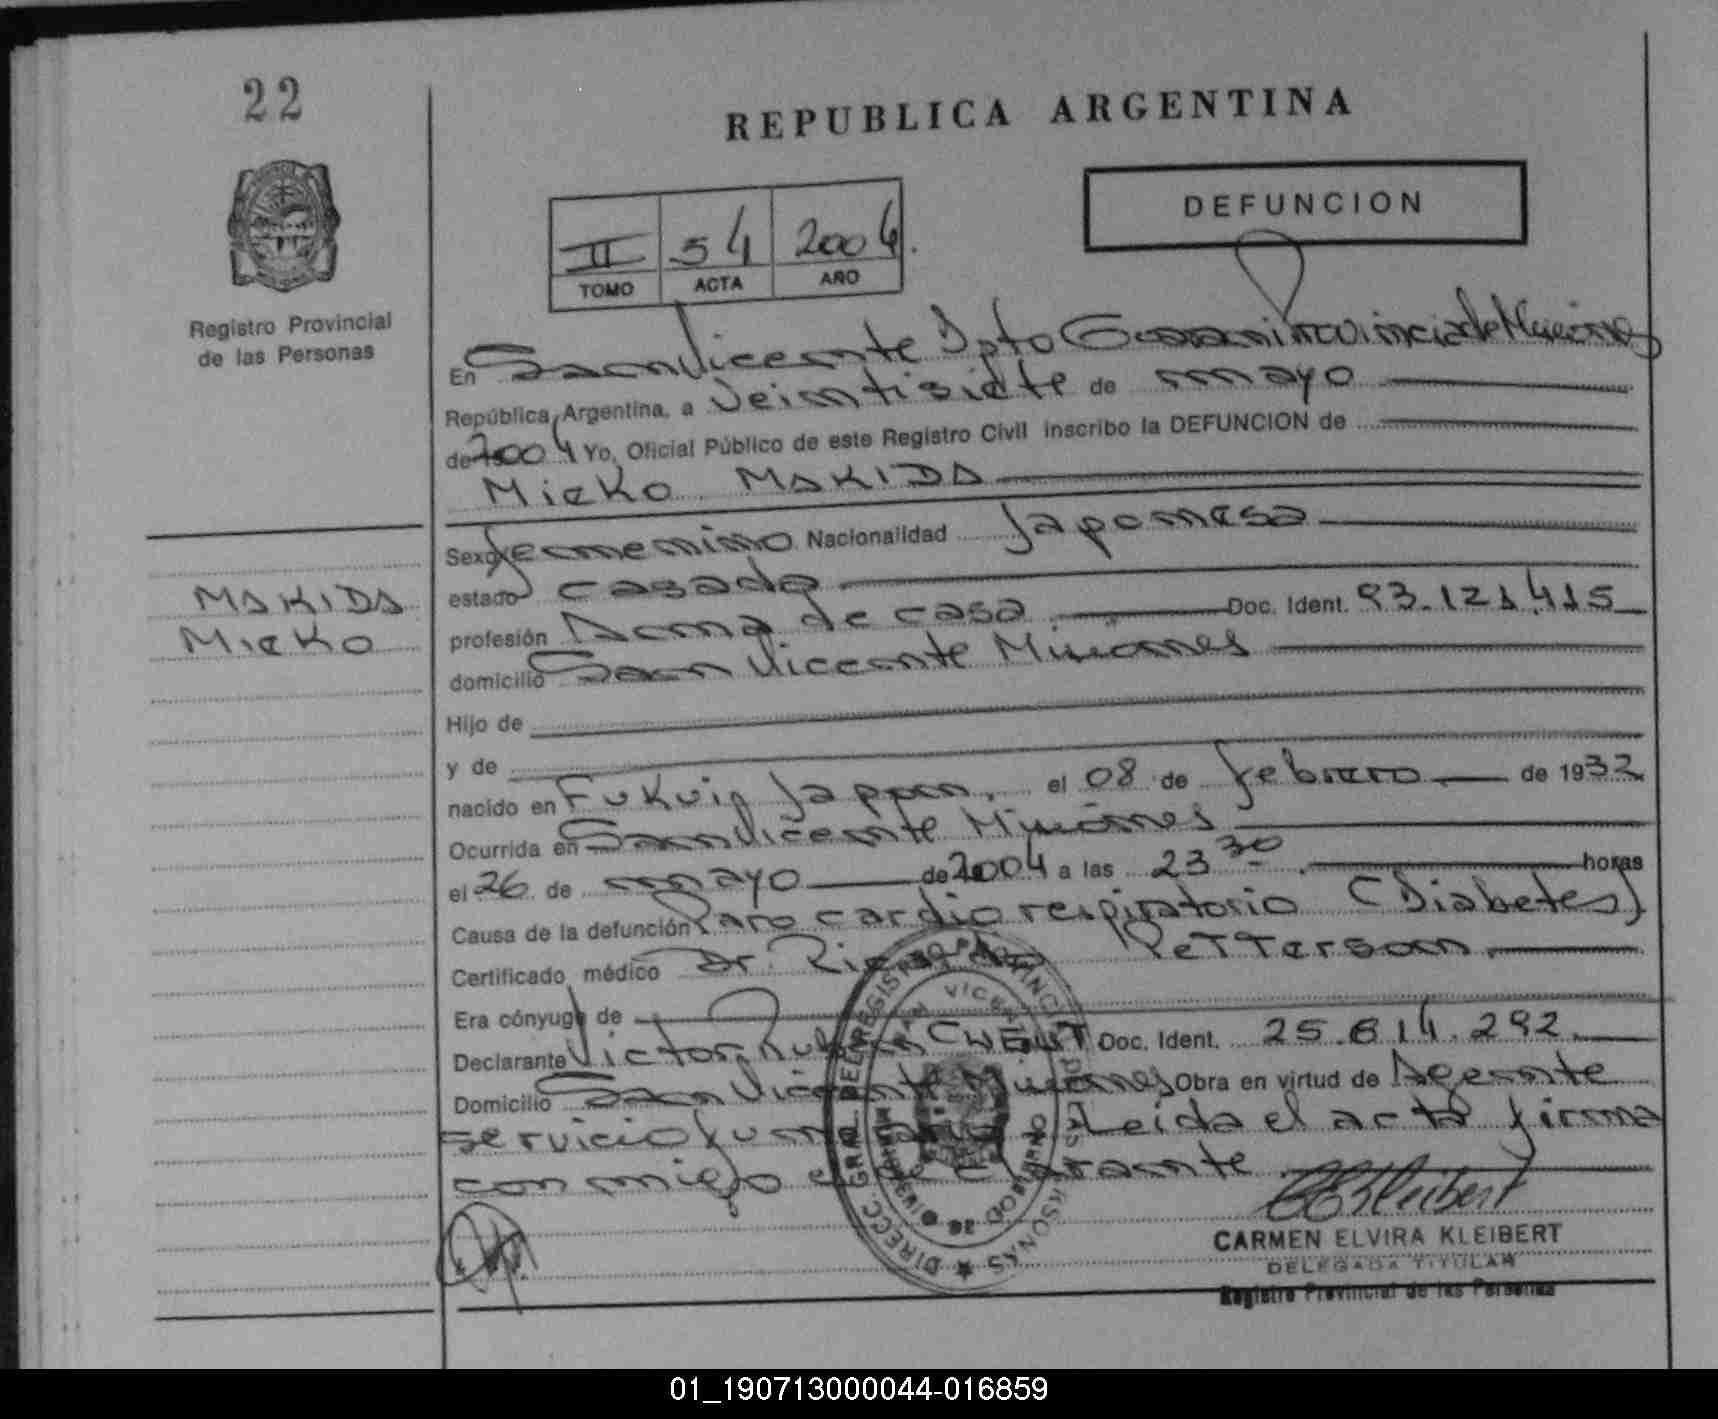 22
REPUBLICA ARGENTINA
DEFUNCION
II 54 2004
TOMO ACTA AÑO
Registro Provincial
de las Personas
En San Vicente Dpto Guarani Provincia de Misiones
República Argentina, a veintisiete de mayo
de 2004 Yo, Oficial Público de este Registro Civil inscribo la DEFUNCION de
Mieko MAKIDA
Sexo femenino Nacionalidad Japonesa
estado casada
MAKIDA
Mieko
profesión Ama de casa Doc. Ident. 93.121.415
domicilio San Vicente Misiones
Hijo de
y de
nacido en Fukuin Japon, el 08 de febrero de 1932
Ocurrida en San Vicente Misiones
el 26 de mayo de 2004 a las 23 30 horas
Causa de la defunción Paro cardio respiratorio (Diabetes)
Certificado médico Dr. Petterson
Era cónyuge de
Declarante Victor Doc. Ident. 25.614.292
Domicilio San Vicente Misiones Obra en virtud de Agente
servicio Leida el acta firma
conmigo
CEKleibert
CARMEN ELVIRA KLEIBERT
DELEGADA TITULAR
Registro Provincial de las Personas
01_190713000044-016859